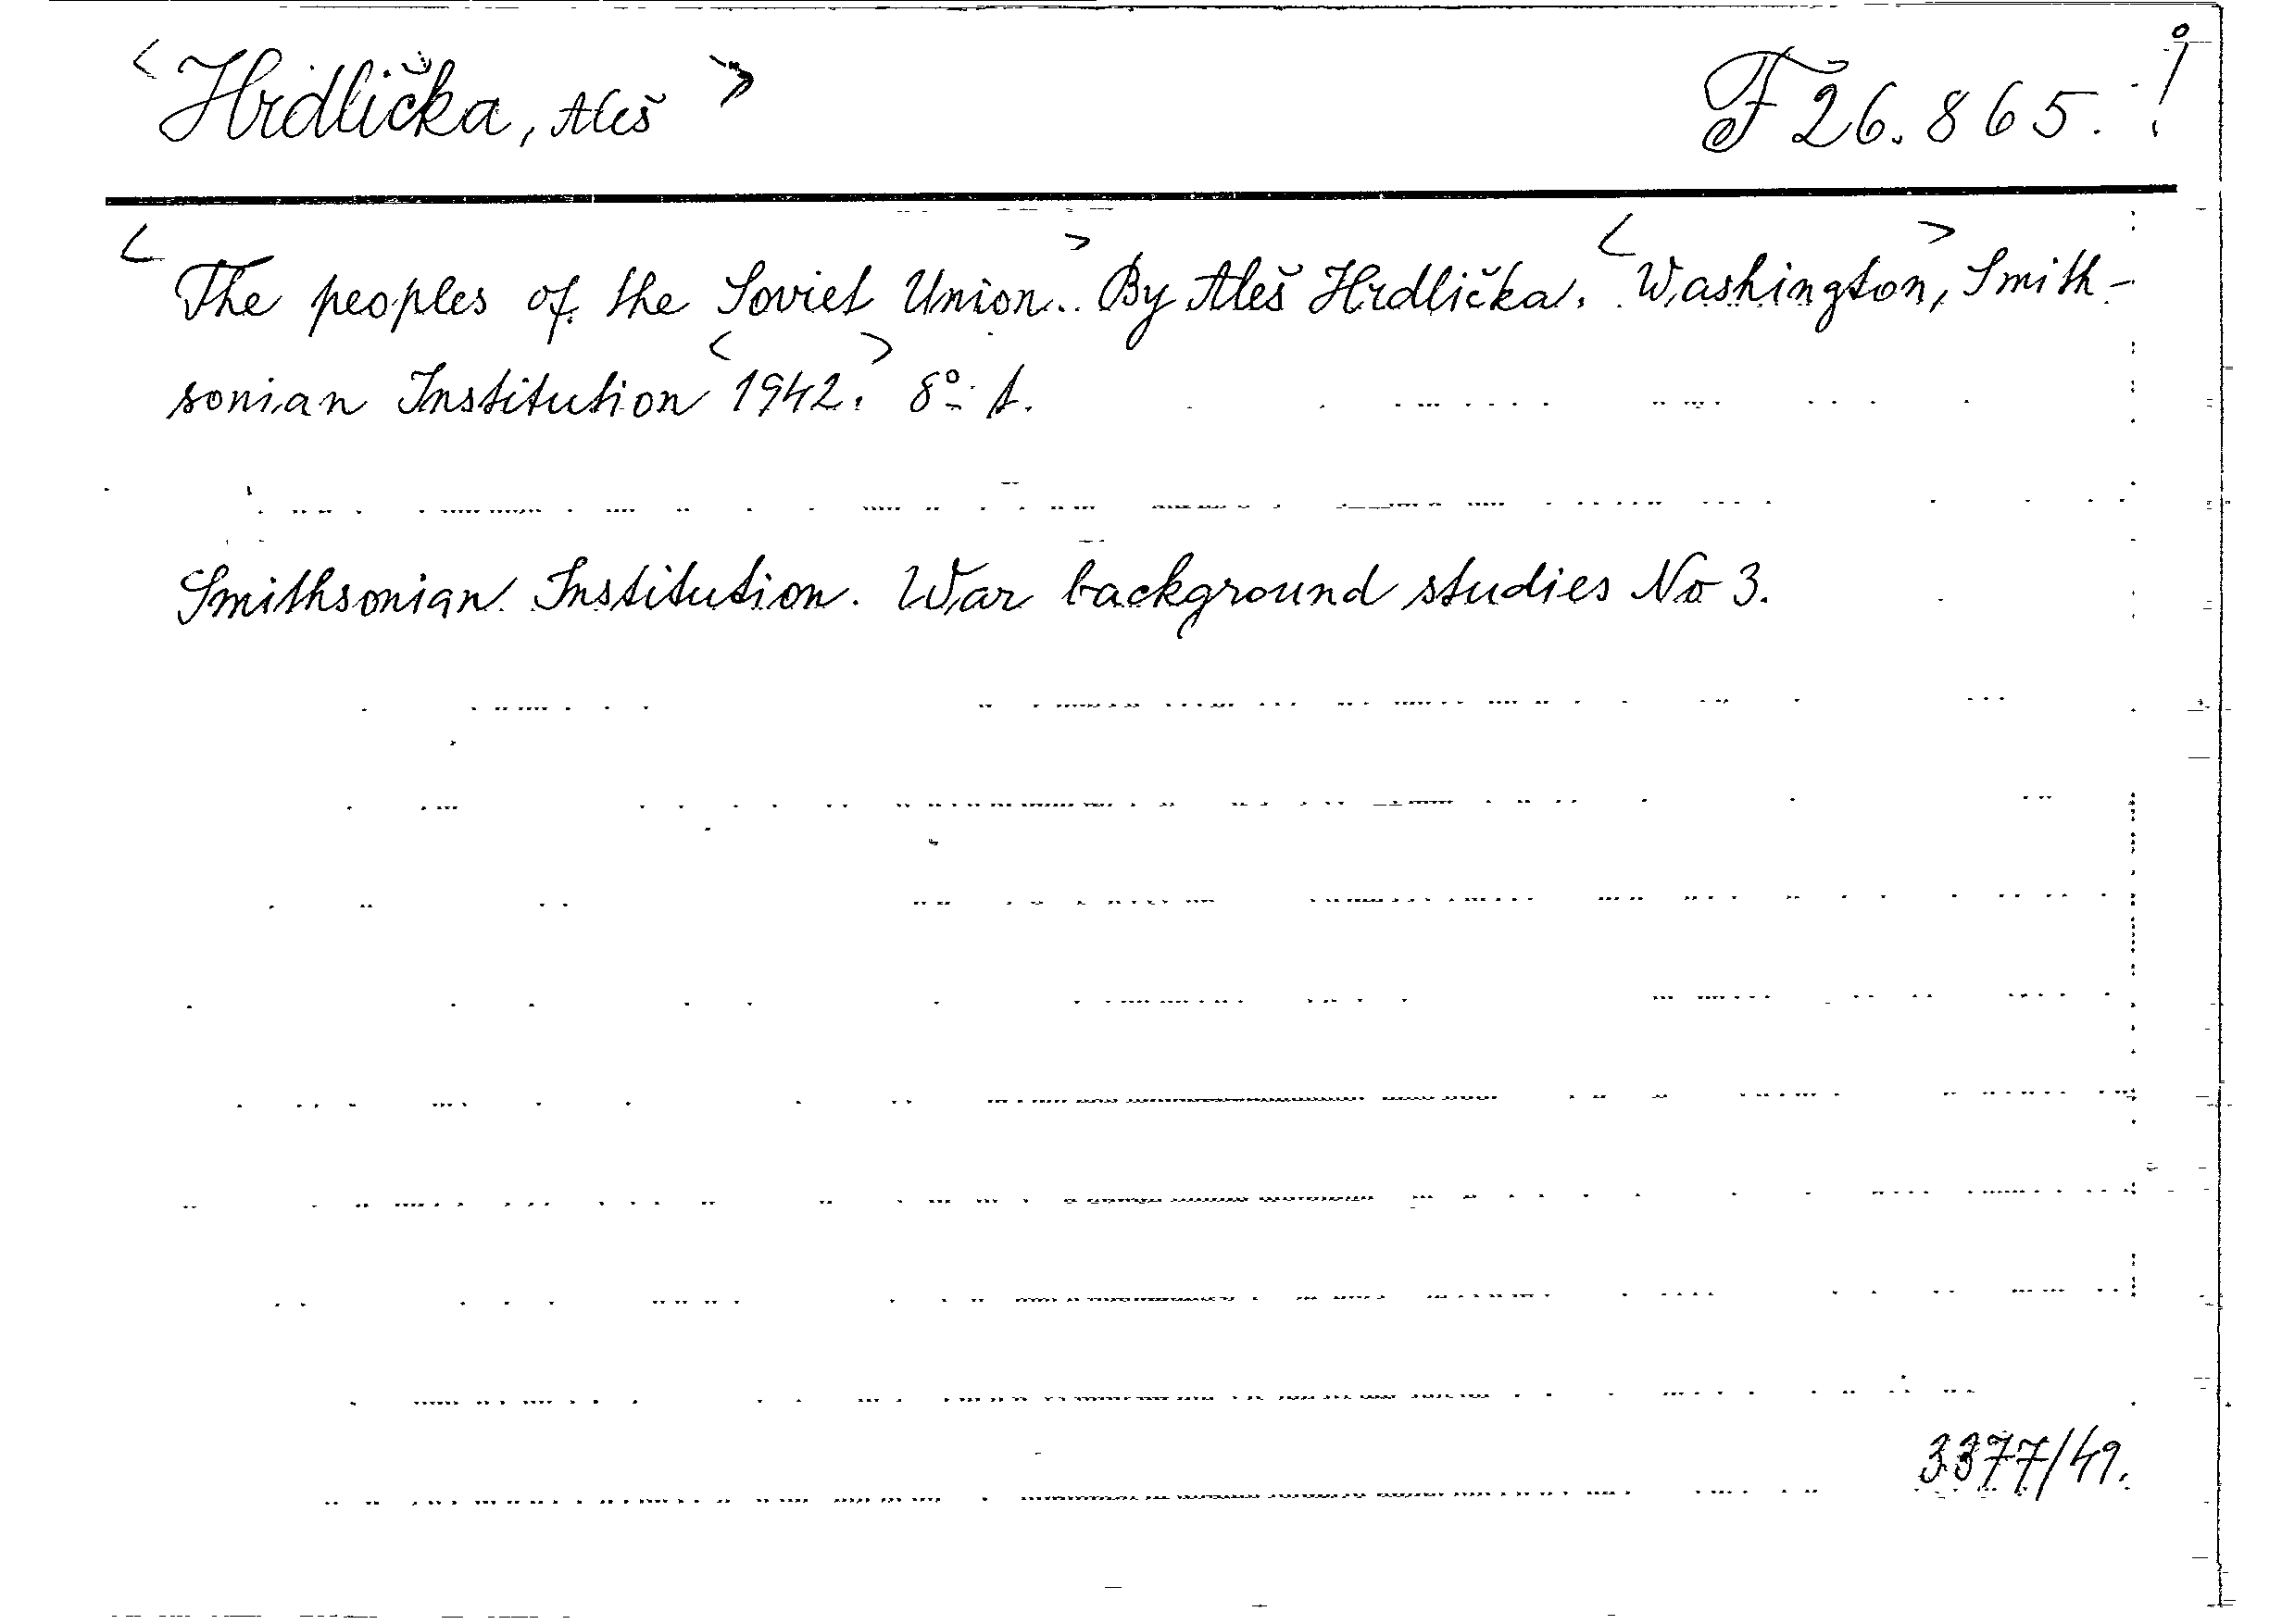 <Hrdlička, Aleš> F 26.865.
<The peoples of the Soviet Union.> By Aleš Hrdlička. <Washington>, Smith-
sonian Institution <1942.> 8º
Smithsonian Institution. War background studies No 3.
3377/49.